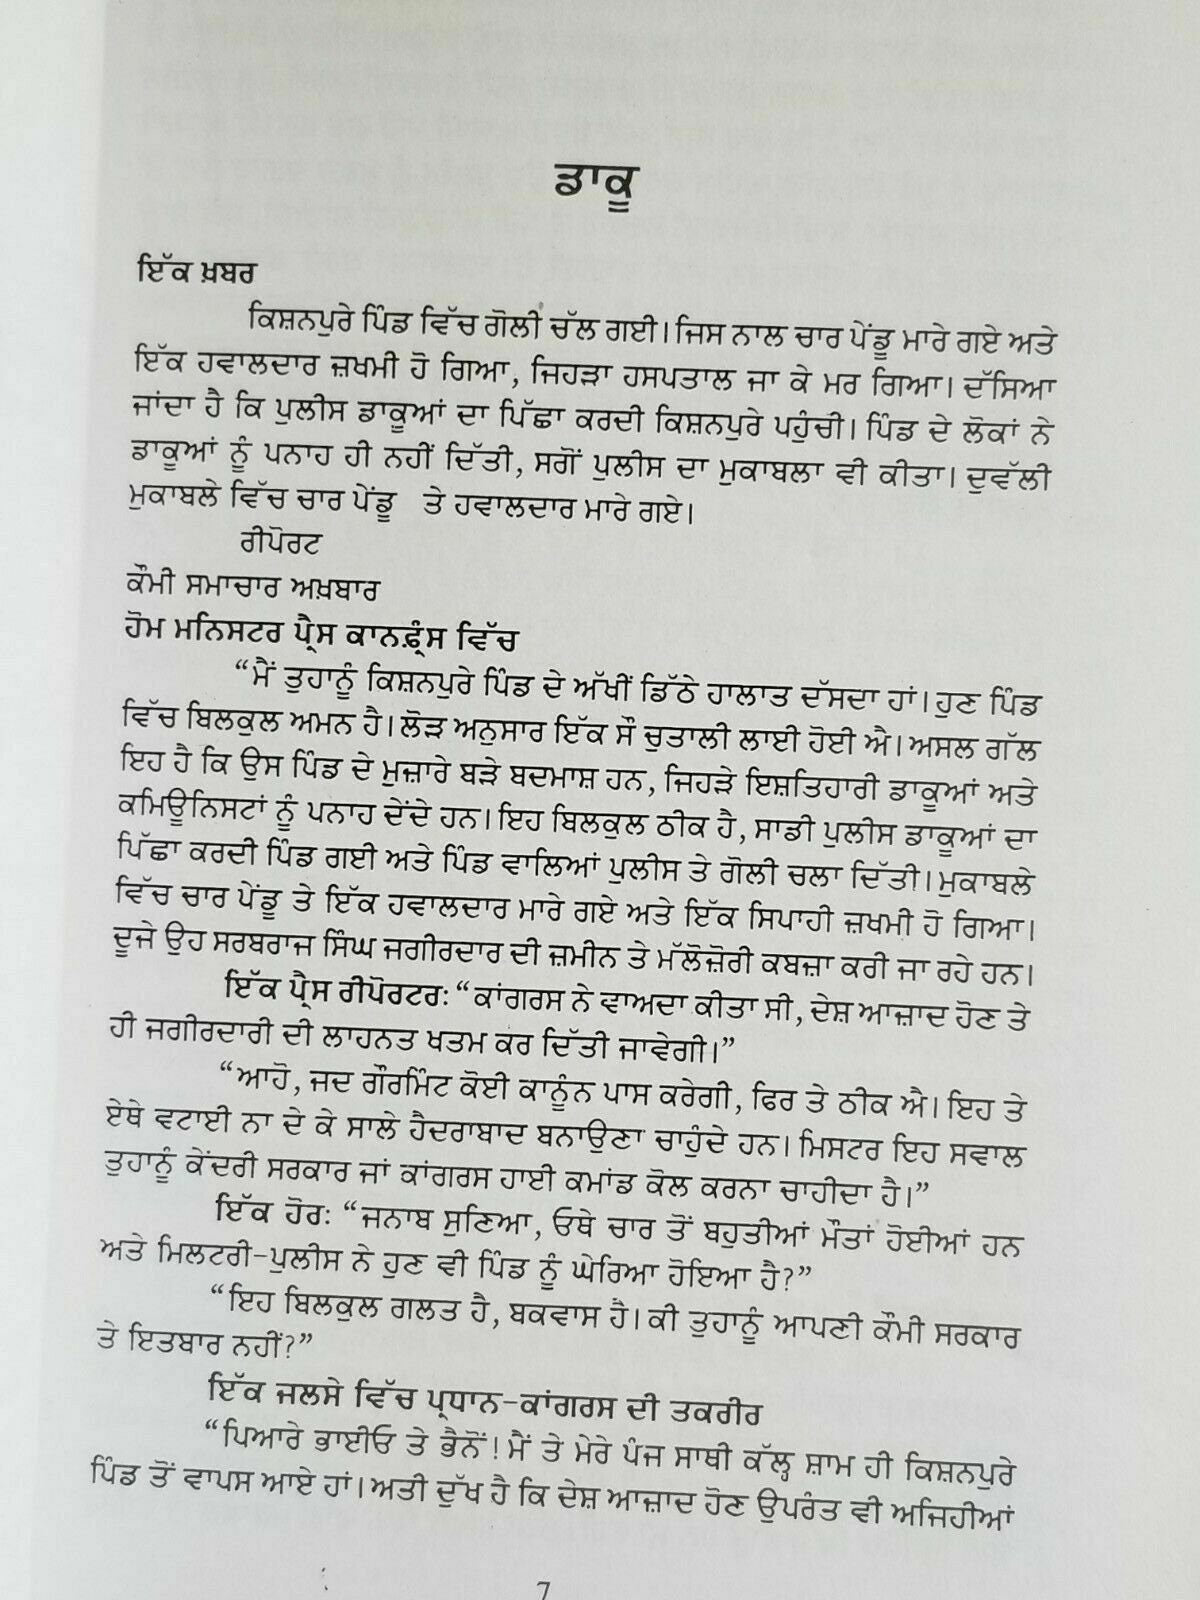 ਡਾਕੂ
ਇੱਕ ਖ਼ਬਰ
ਕਿਸ਼ਨਪੁਰੇ ਪਿੰਡ ਵਿੱਚ ਗੋਲੀ ਚੱਲ ਗਈ। ਜਿਸ ਨਾਲ ਚਾਰ ਪੇਂਡੂ ਮਾਰੇ ਗਏ ਅਤੇ
ਇੱਕ ਹਵਾਲਦਾਰ ਜ਼ਖਮੀ ਹੋ ਗਿਆ, ਜਿਹੜਾ ਹਸਪਤਾਲ ਜਾ ਕੇ ਮਰ ਗਿਆ। ਦੱਸਿਆ
ਜਾਂਦਾ ਹੈ ਕਿ ਪੁਲੀਸ ਡਾਕੂਆਂ ਦਾ ਪਿੱਛਾ ਕਰਦੀ ਕਿਸ਼ਨਪੁਰੇ ਪਹੁੰਚੀ। ਪਿੰਡ ਦੇ ਲੋਕਾਂ ਨੇ
ਡਾਕੂਆਂ ਨੂੰ ਪਨਾਹ ਹੀ ਨਹੀਂ ਦਿੱਤੀ, ਸਗੋਂ ਪੁਲੀਸ ਦਾ ਮੁਕਾਬਲਾ ਵੀ ਕੀਤਾ। ਦੁਵੱਲੀ
ਮੁਕਾਬਲੇ ਵਿੱਚ ਚਾਰ ਪੇਂਡੂ ਤੇ ਹਵਾਲਦਾਰ ਮਾਰੇ ਗਏ।
ਰੀਪੋਰਟ
ਕੌਮੀ ਸਮਾਚਾਰ ਅਖ਼ਬਾਰ
ਹੋਮ ਮਨਿਸਟਰ ਪ੍ਰੈਸ ਕਾਨਫ਼੍ਰੰਸ ਵਿੱਚ
“ਮੈਂ ਤੁਹਾਨੂੰ ਕਿਸ਼ਨਪੁਰੇ ਪਿੰਡ ਦੇ ਅੱਖੀਂ ਡਿੱਠੇ ਹਾਲਾਤ ਦੱਸਦਾ ਹਾਂ। ਹੁਣ ਪਿੰਡ
ਵਿੱਚ ਬਿਲਕੁਲ ਅਮਨ ਹੈ। ਲੋੜ ਅਨੁਸਾਰ ਇੱਕ ਸੌ ਚੁਤਾਲੀ ਲਾਈ ਹੋਈ ਐ। ਅਸਲ ਗੱਲ
ਇਹ ਹੈ ਕਿ ਉਸ ਪਿੰਡ ਦੇ ਮੁਜ਼ਾਰੇ ਬੜੇ ਬਦਮਾਸ਼ ਹਨ, ਜਿਹੜੇ ਇਸ਼ਤਿਹਾਰੀ ਡਾਕੂਆਂ ਅਤੇ
ਕਮਿਊਨਿਸਟਾਂ ਨੂੰ ਪਨਾਹ ਦੇਂਦੇ ਹਨ। ਇਹ ਬਿਲਕੁਲ ਠੀਕ ਹੈ, ਸਾਡੀ ਪੁਲੀਸ ਡਾਕੂਆਂ ਦਾ
ਪਿੱਛਾ ਕਰਦੀ ਪਿੰਡ ਗਈ ਅਤੇ ਪਿੰਡ ਵਾਲਿਆਂ ਪੁਲੀਸ ਤੇ ਗੋਲੀ ਚਲਾ ਦਿੱਤੀ। ਮੁਕਾਬਲੇ
ਵਿੱਚ ਚਾਰ ਪੇਂਡੂ ਤੇ ਇੱਕ ਹਵਾਲਦਾਰ ਮਾਰੇ ਗਏ ਅਤੇ ਇੱਕ ਸਿਪਾਹੀ ਜ਼ਖਮੀ ਹੋ ਗਿਆ।
ਦੂਜੇ ਉਹ ਸਰਬਰਾਜ ਸਿੰਘ ਜਗੀਰਦਾਰ ਦੀ ਜ਼ਮੀਨ ਤੇ ਮੱਲੋਜ਼ੋਰੀ ਕਬਜ਼ਾ ਕਰੀ ਜਾ ਰਹੇ ਹਨ।
ਇੱਕ ਪ੍ਰੈਸ ਰੀਪੋਰਟਰ: “ਕਾਂਗਰਸ ਨੇ ਵਾਅਦਾ ਕੀਤਾ ਸੀ, ਦੇਸ਼ ਆਜ਼ਾਦ ਹੋਣ ਤੇ
ਹੀ ਜਗੀਰਦਾਰੀ ਦੀ ਲਾਹਨਤ ਖਤਮ ਕਰ ਦਿੱਤੀ ਜਾਵੇਗੀ।”
“ਆਹੋ, ਜਦ ਗੌਰਮਿੰਟ ਕੋਈ ਕਾਨੂੰਨ ਪਾਸ ਕਰੇਗੀ, ਫਿਰ ਤੇ ਠੀਕ ਐ। ਇਹ ਤੇ
ਏਥੇ ਵਟਾਈ ਨਾ ਦੇ ਕੇ ਸਾਲੇ ਹੈਦਰਾਬਾਦ ਬਨਾਉਣਾ ਚਾਹੁੰਦੇ ਹਨ। ਮਿਸਟਰ ਇਹ ਸਵਾਲ
ਤੁਹਾਨੂੰ ਕੇਂਦਰੀ ਸਰਕਾਰ ਜਾਂ ਕਾਂਗਰਸ ਹਾਈ ਕਮਾਂਡ ਕੋਲ ਕਰਨਾ ਚਾਹੀਦਾ ਹੈ।”
ਇੱਕ ਹੋਰ: “ਜਨਾਬ ਸੁਣਿਆ, ਓਥੇ ਚਾਰ ਤੋਂ ਬਹੁਤੀਆਂ ਮੌਤਾਂ ਹੋਈਆਂ ਹਨ
ਅਤੇ ਮਿਲਟਰੀ-ਪੁਲੀਸ ਨੇ ਹੁਣ ਵੀ ਪਿੰਡ ਨੂੰ ਘੇਰਿਆ ਹੋਇਆ ਹੈ?”
“ਇਹ ਬਿਲਕੁਲ ਗਲਤ ਹੈ, ਬਕਵਾਸ ਹੈ। ਕੀ ਤੁਹਾਨੂੰ ਆਪਣੀ ਕੌਮੀ ਸਰਕਾਰ
ਤੇ ਇਤਬਾਰ ਨਹੀਂ?”
ਇੱਕ ਜਲਸੇ ਵਿੱਚ ਪ੍ਰਧਾਨ-ਕਾਂਗਰਸ ਦੀ ਤਕਰੀਰ
“ਪਿਆਰੇ ਭਾਈਓ ਤੇ ਭੈਨੋਂ! ਮੈਂ ਤੇ ਮੇਰੇ ਪੰਜ ਸਾਥੀ ਕੱਲ੍ਹ ਸ਼ਾਮ ਹੀ ਕਿਸ਼ਨਪੁਰੇ
ਪਿੰਡ ਤੋਂ ਵਾਪਸ ਆਏ ਹਾਂ। ਅਤੀ ਦੁੱਖ ਹੈ ਕਿ ਦੇਸ਼ ਆਜ਼ਾਦ ਹੋਣ ਉਪਰੰਤ ਵੀ ਅਜਿਹੀਆਂ
7